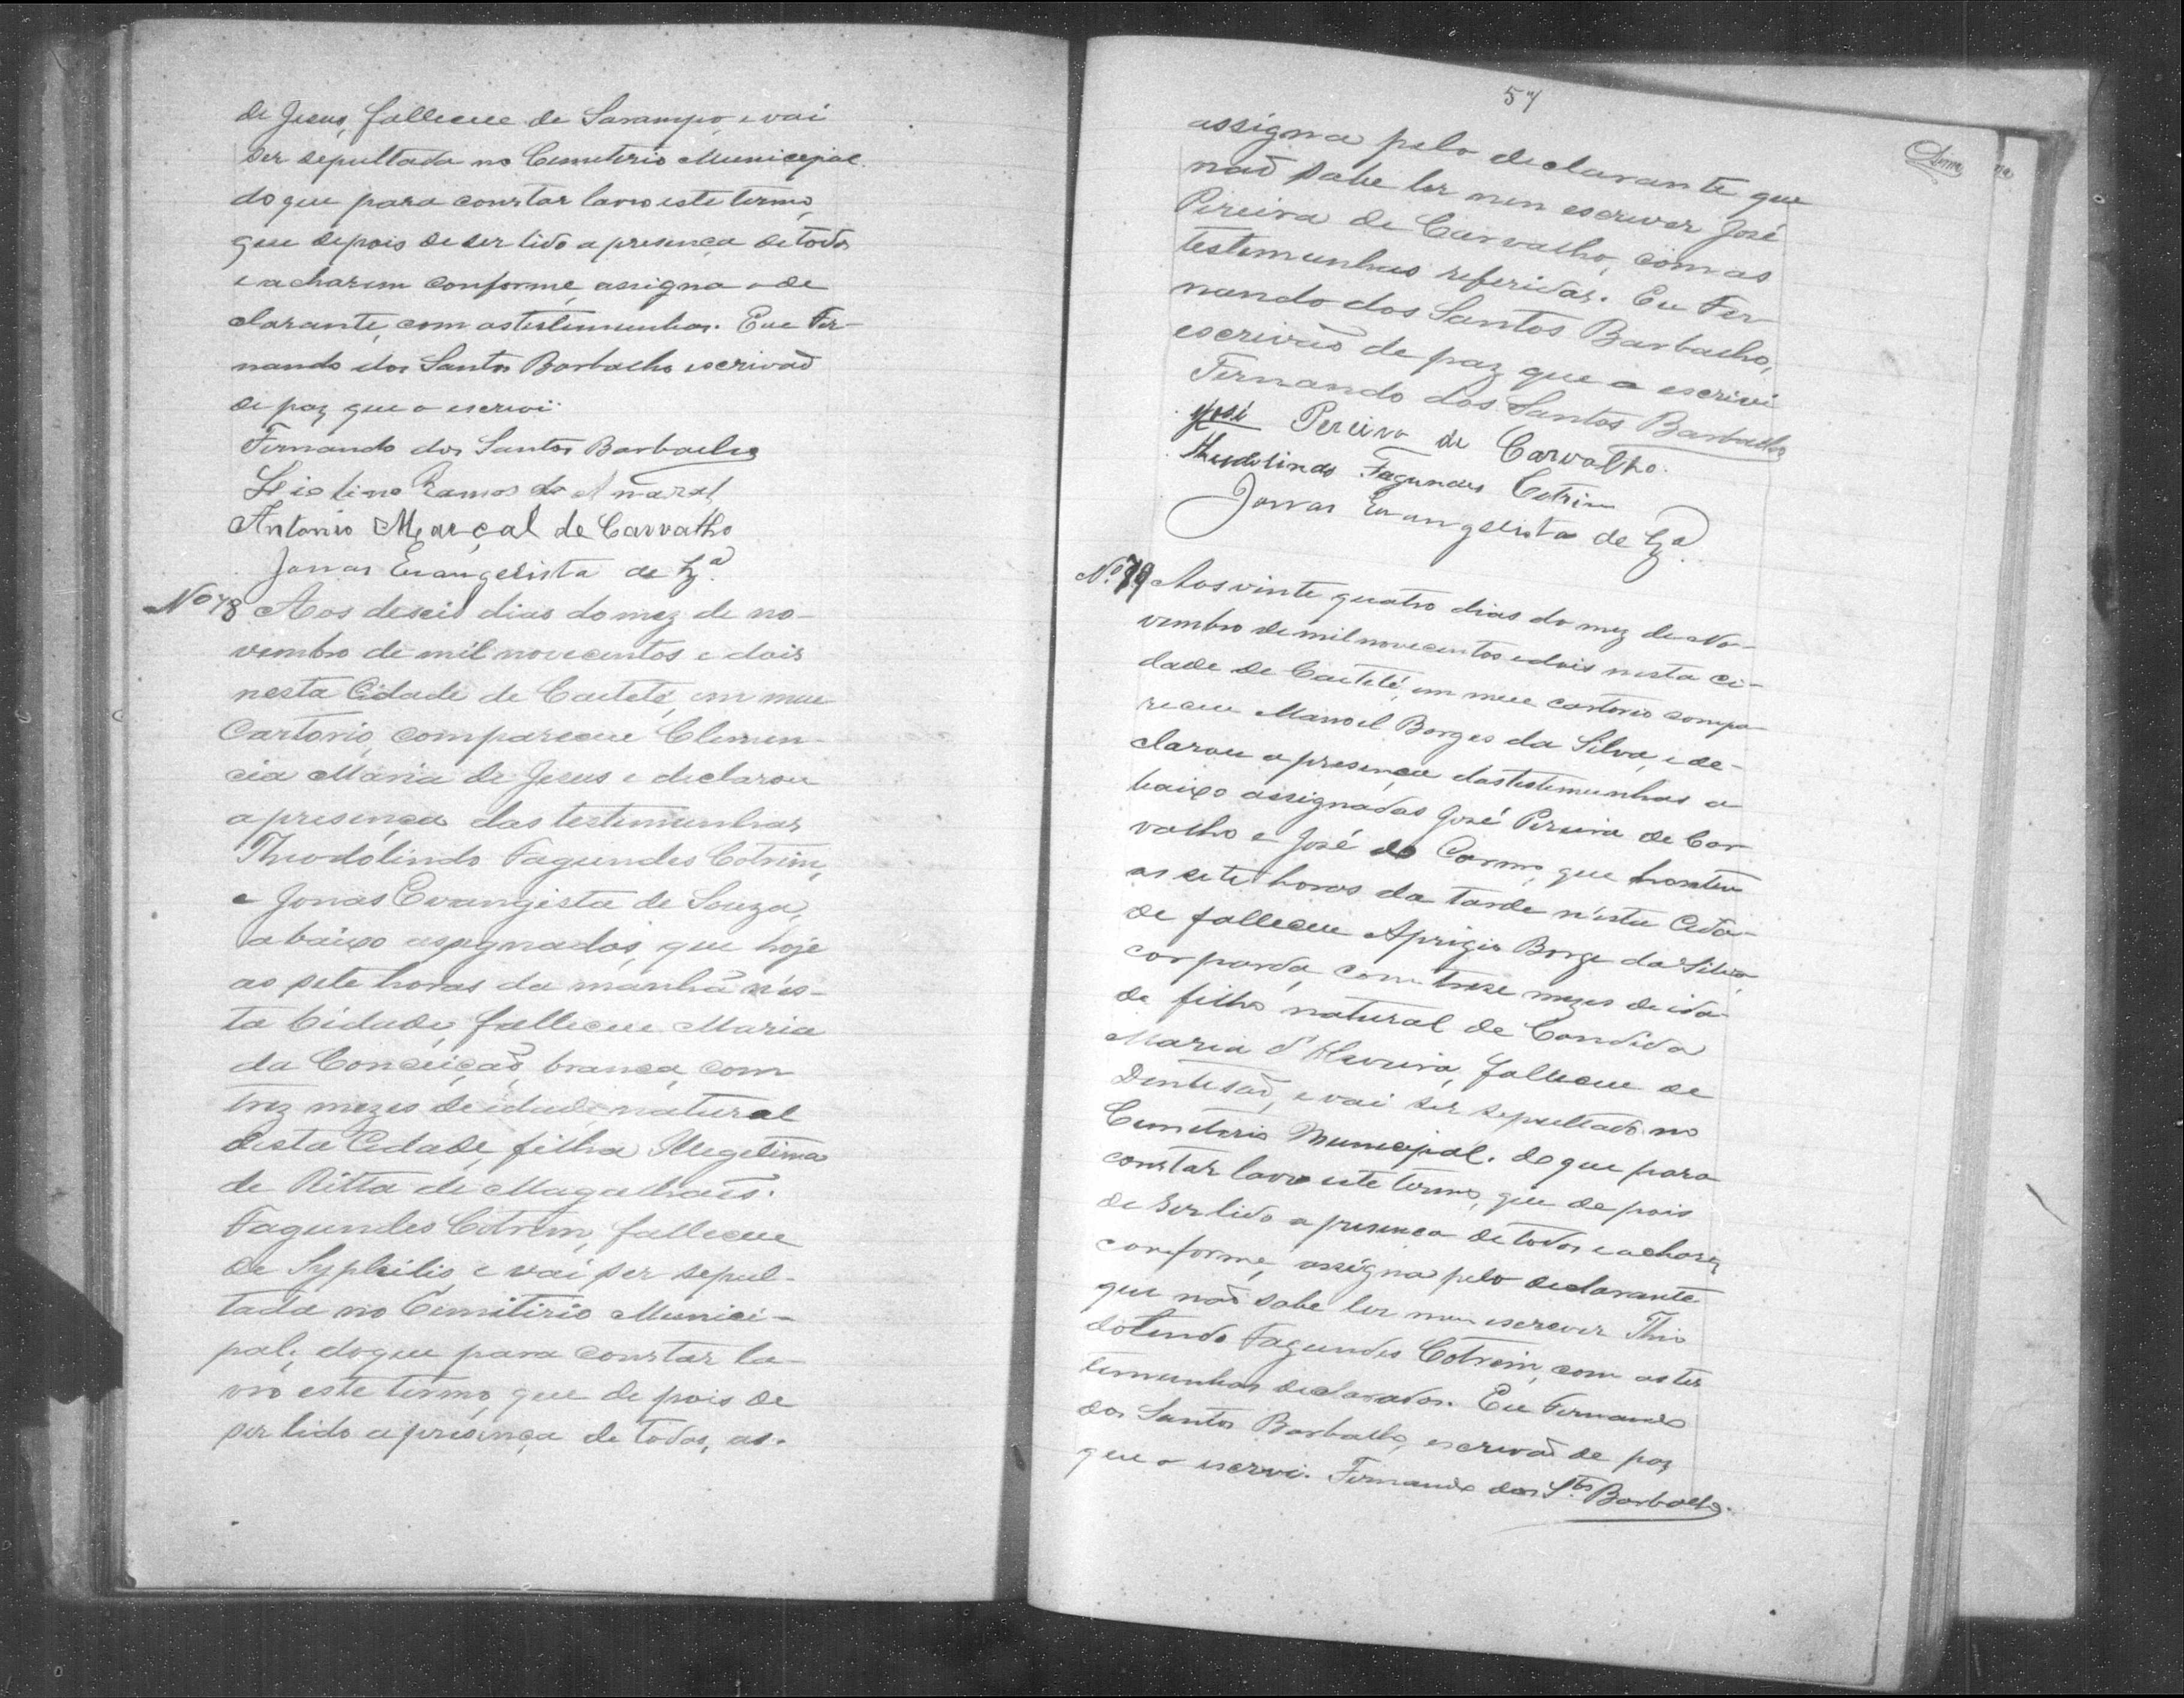 de Jesus, falleceu de Sarampo, e vai
ser sepultada no Cemeterio Municepal.
do que para constar lavro este termo,
que depois de ser lido a presença de todos
e acharem conforme, assigna o de
clarante, com as testemunhas. Eu Fer-
nando dos Santos Barbalho escrivaõ
de paz que o escrevi.
Fernando dos Santos Barbalho
Ramos do Amaral
Antonio Marçal de Carvalho
Jonas Evangelista de Sza.
No 78 Aos deseis dias do mez de no-
vembro de mil novecentos e dois
nesta Cidade de Caeteté, em meu
Cartorio, compareceu Clemen-
cia Maria de Jesus e declarou
a presença das testemunhas
Theodolindo Fagundes Cotrim,
e Jonas Evangista de Souza,
abaixo assignados, que hoje
as sete horas da manhã n'es-
ta Cidade, falleceu Maria
da Conceiçaõ, branca, com
trez mezes de idade natural
desta Cidade, filha Illegetima
de Ritta de Magalhaẽs.
Fagundes Cotrim, falleceu
de Syphilis, e vai ser sepul-
tada no Cemitirio Munici-
pal, do que para constar la-
vro este termo, que de pois de
ser lido a presença de todos, as-
57
assigna pelo declarante que
naõ sabe ler nem escrever José
Pireira de Carvalho, com as
testemunhas referidas. Eu Fer
nando dos Santos Barbalho,
escrivaõ de paz que a escrivi
Fernando dos Santos Barbalho
José Pereira de Carvalho.
Theodolindo Fagundes Cotrim
Jonas Evangelista de Sza.
No. 79 Aos vinte quatro dias do mez de No-
vembro de mil novecentos e dois nesta ci-
dade de Caeteté, em meu cartorio compa-
receu Manoel Borges da Silva, e de-
clarou a presença das testemunhas a-
baixo assignadas José Pereira de Car
valho e José do Carmo, que hontem
as sete horas da tarde n'esta Cida-
de falleceu Aprigio Borge da Silva,
cor parda, com treze mezes de ida-
de filho natural de Candida
Maria d'Oliveira, falleceu de
Dentisaõ, e vai ser sepultado no
Cemeterio Municepal. do que para
constar lavro este termo, que de pois
de ser lido a presença de todos e acharem
conforme, assigna pelo declarante
que naõ sabe ler nem escrever Thio
dolindo Fagundes Cotrim, com as tes
temunhas declaradas. Eu Fernando
dos Santos Barbalho, escrivaõ de paz
que o escrevi. Fernando dos Stos Barbalho.